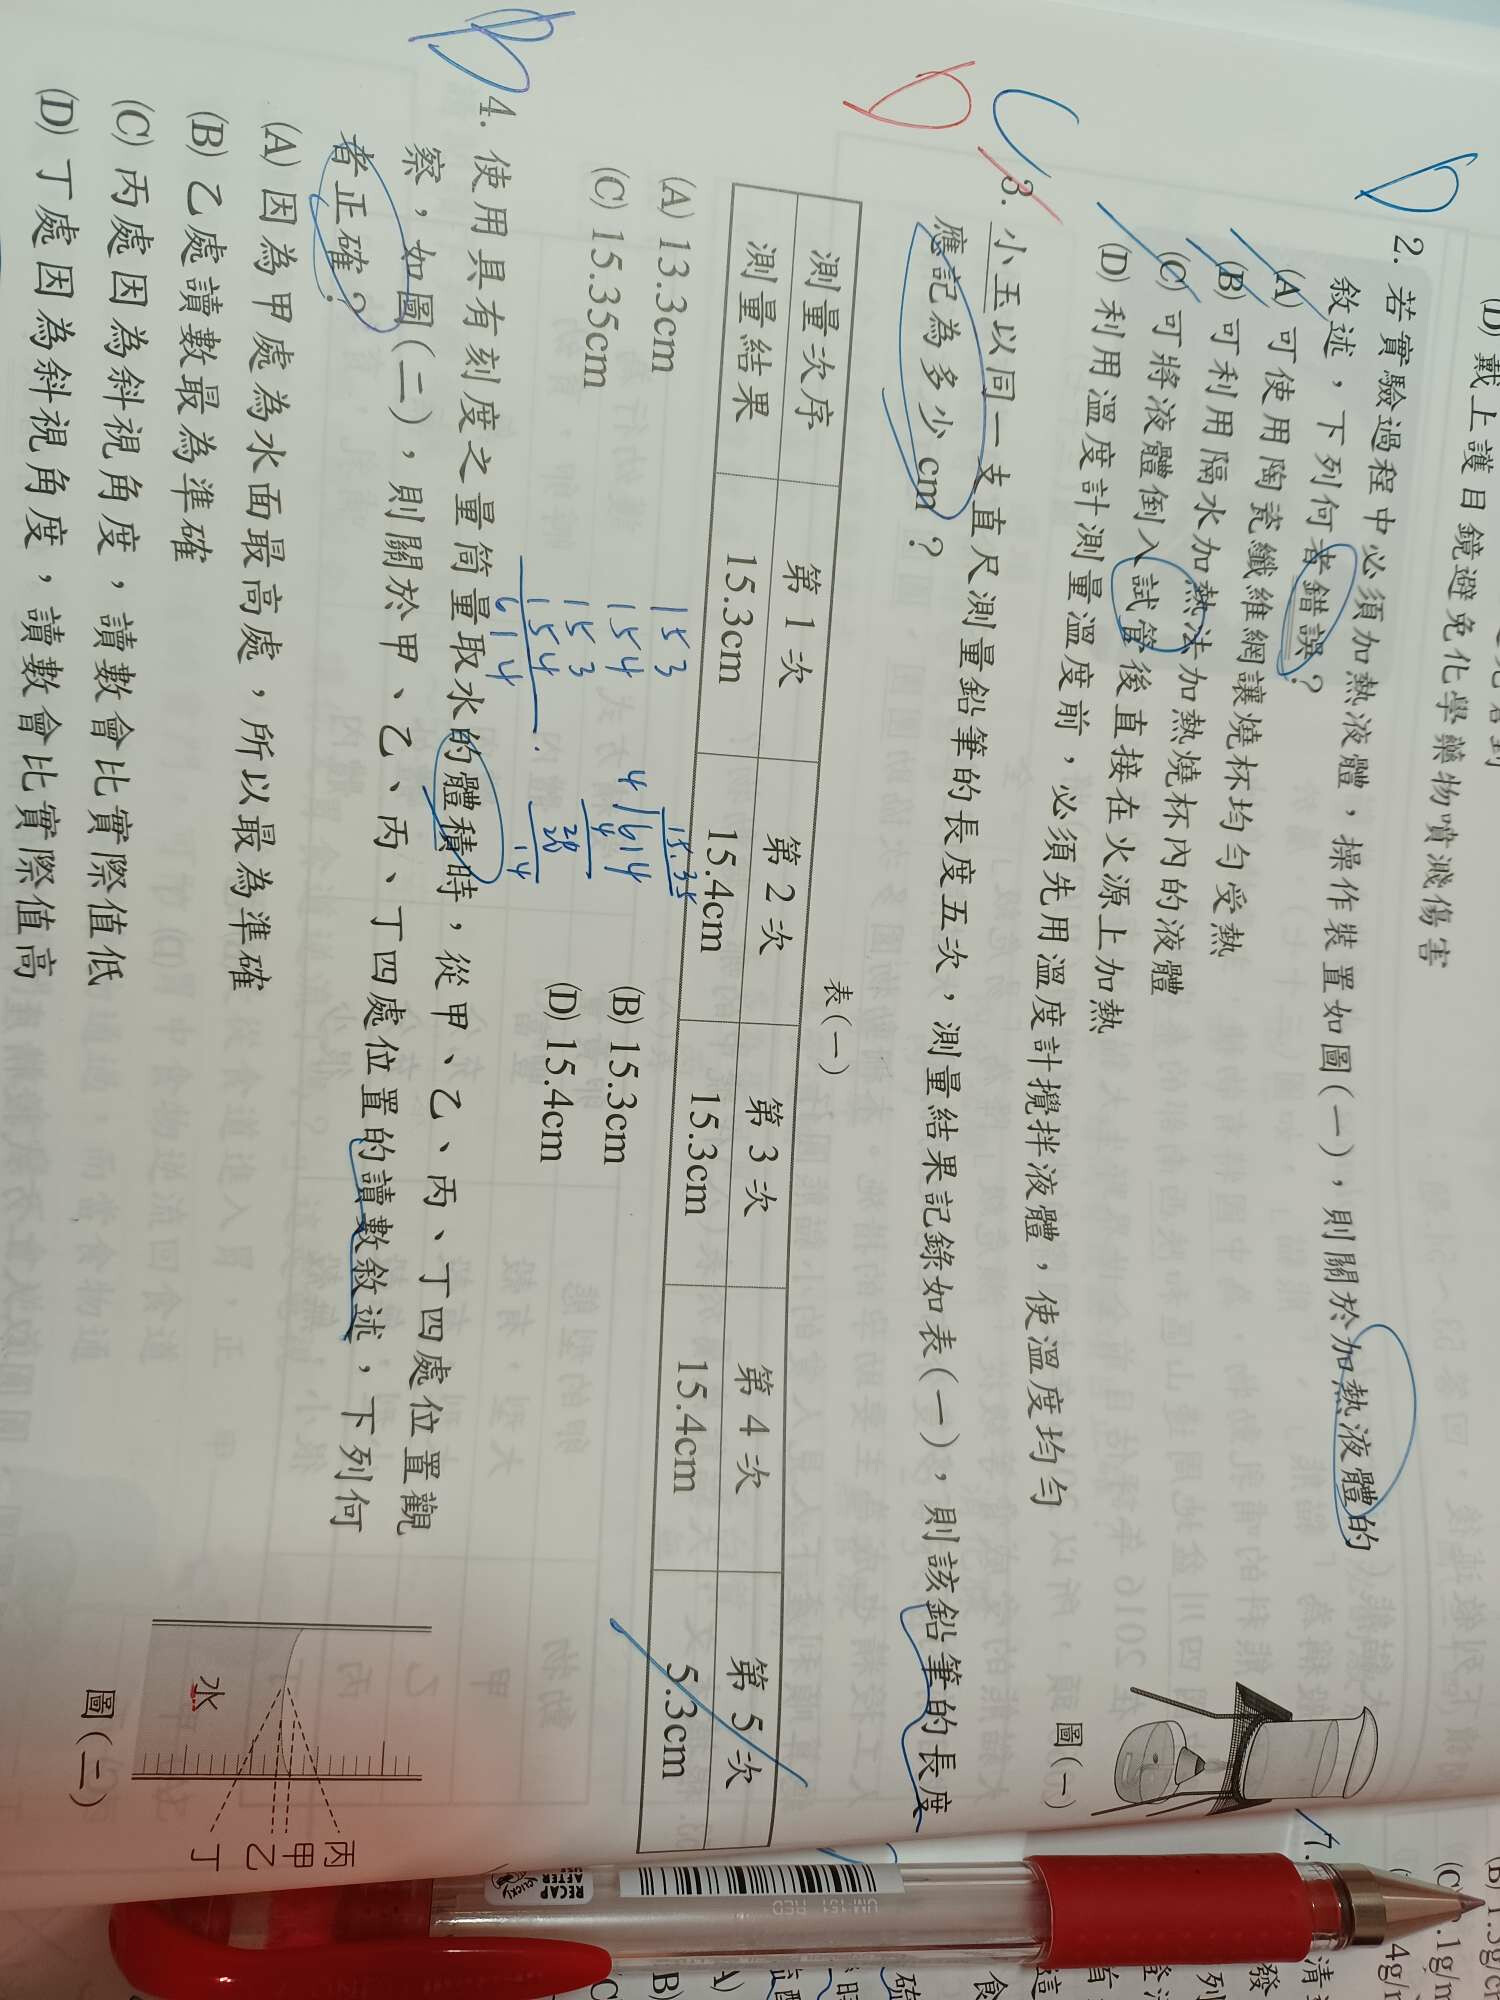 (D) 戴上護目鏡避免化學藥物噴濺傷害
D
2. 若實驗過程中必須加熱液體，操作裝置如圖(一)，則關於加熱液體的
敘述，下列何者錯誤？
(A) 可使用陶瓷纖維網讓燒杯均勻受熱
(B) 可利用隔水加熱法加熱燒杯內的液體
(C) 可將液體倒入試管後直接在火源上加熱
(D) 利用溫度計測量溫度前，必須先用溫度計攪拌液體，使溫度均勻
圖(一)
C
D
3. 小玉以同一支直尺測量鉛筆的長度五次，測量結果記錄如表(一)，則該鉛筆的長度
應記為多少cm？
表(一)
測量次序 第1次 第2次 第3次 第4次 第5次
測量結果 15.3cm 15.4cm 15.3cm 15.4cm 5.3cm
(A) 13.3cm (B) 15.3cm
(C) 15.35cm (D) 15.4cm
153
154
153
154
614
15.35
4 614
4
28
14
B
4. 使用具有刻度之量筒量取水的體積時，從甲、乙、丙、丁四處位置觀
察，如圖(二)，則關於甲、乙、丙、丁四處位置的讀數敘述，下列何
者正確？
(A) 因為甲處為水面最高處，所以最為準確
(B) 乙處讀數最為準確
(C) 丙處因為斜視角度，讀數會比實際值低
(D) 丁處因為斜視角度，讀數會比實際值高
水
丙
甲
乙
丁
圖(二)
RECAP
AFTER
USE
UM-151 RED
7.